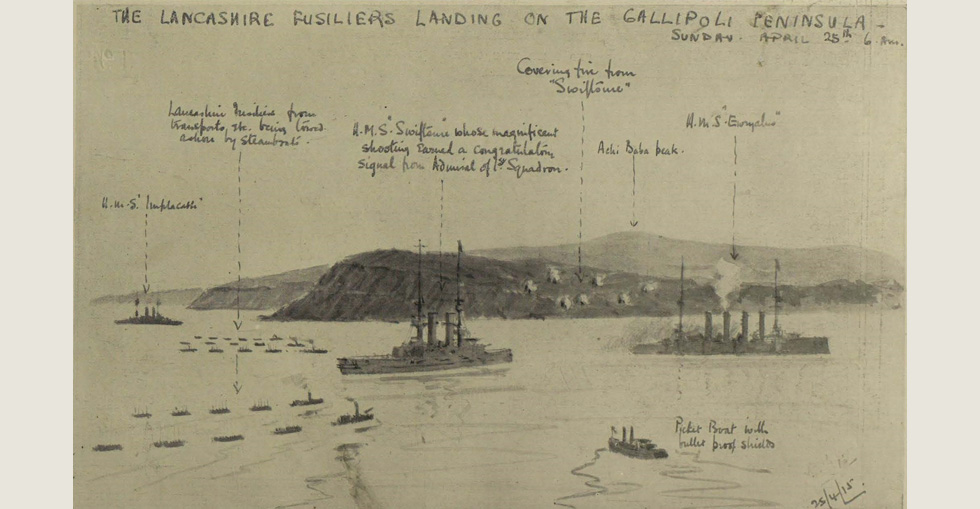 THE LANCASHIRE FUSILIERS LANDING ON THE GALLIPOLI PENINSULA -
SUNDAY. APRIL 25th 6. Am.
Covering fire from
"Swiftsure"
Lancashire Fusiliers from
transports, etc. being towed
ashore by Steamboats.
H.M.S "Swiftsure" whose magnificent
shooting earned a congratulatory
signal from Admiral of 1st Squadron.
Achi Baba peak.
H.M.S "Euryalus"
H.M.S "Implacable"
Picket Boat with
bullet proof shields
25/4/15